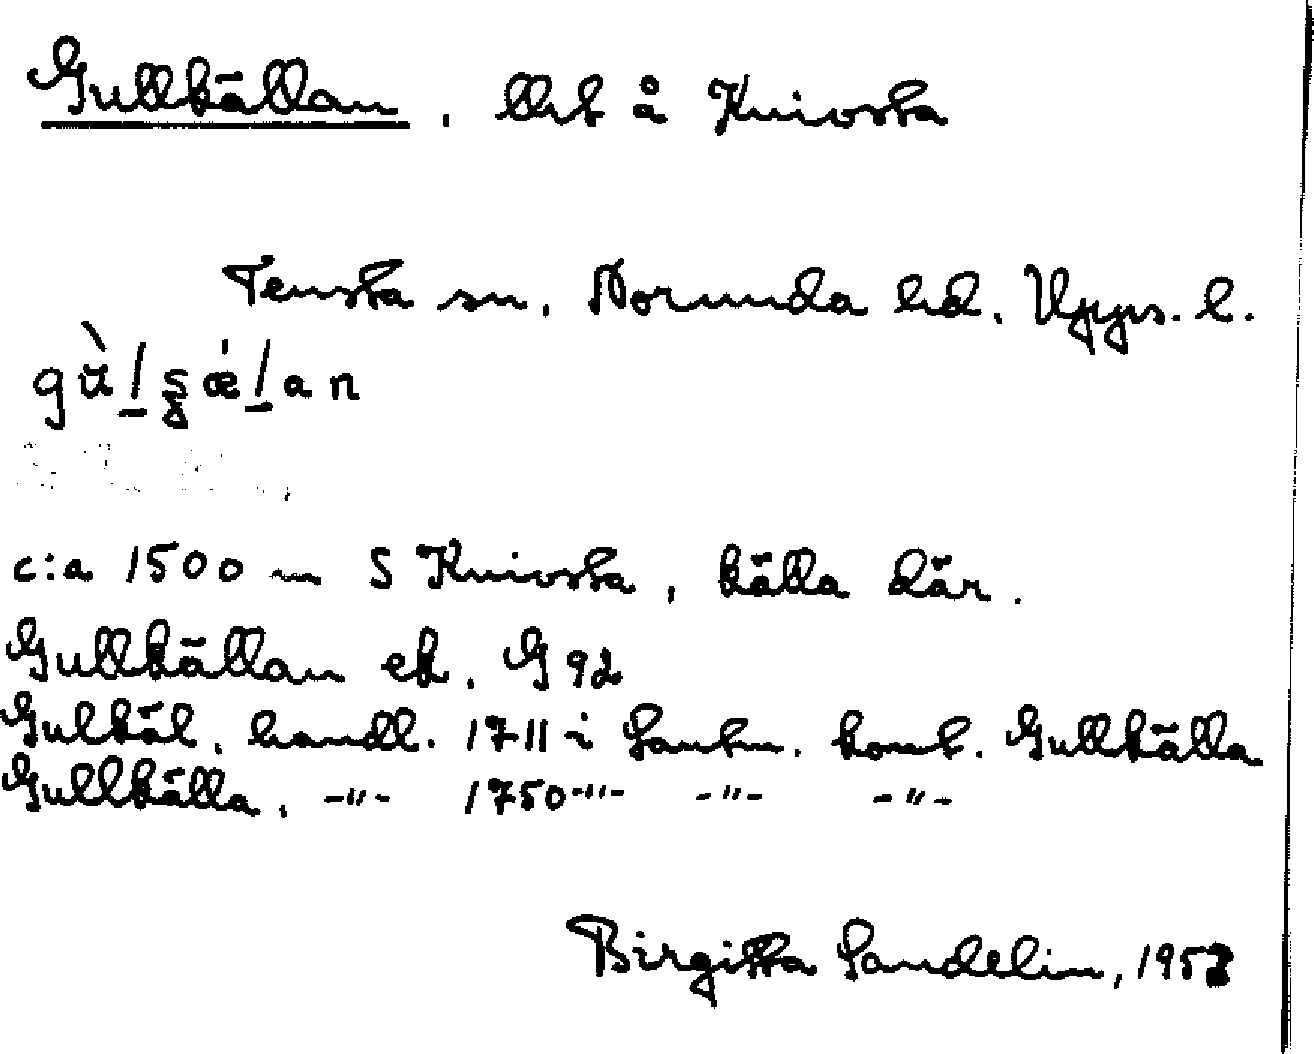 Gullkällan, llt å Knivsta
Tensta sn, Norunda hd. Upps. l.
c:a 1500 m S Knivsta, källa där.
Gullkällan ek. G 92
Gulkäl, handl. 1711 i Lantm. kont. Gullkälla
Gullkälla, -"- 1750 -"- -"- -"-
Birgitta Sandelin, 195